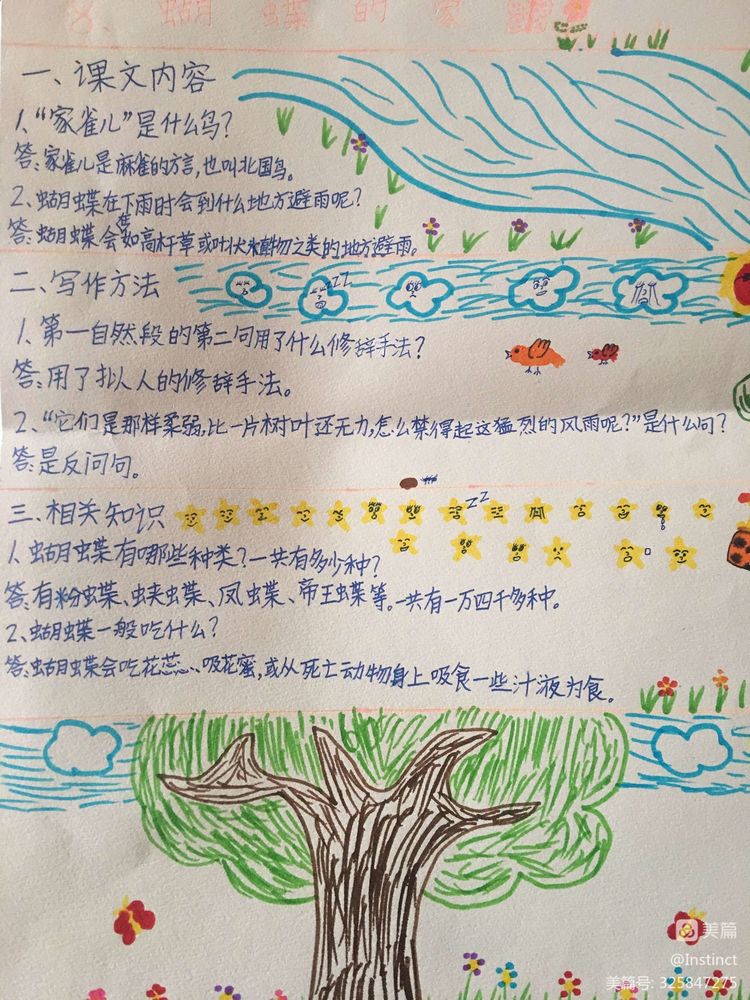 8. 蝴蝶的家
一、课文内容
1、“家雀儿”是什么鸟？
答：家雀儿是麻雀的方言，也叫北国鸟。
2、蝴蝶在下雨时会到什么地方避雨呢？
答：蝴蝶会在如高杆草或叶状之类的地方避雨。
二、写作方法
1、第一自然段的第二句用了什么修辞手法？
答：用了拟人的修辞手法。
2、“它们是那样柔弱，比一片树叶还无力，怎么禁得起这猛烈的风雨呢？”是什么句？
答：是反问句。
三、相关知识
1、蝴蝶有哪些种类？一共有多少种？
答：有粉蝶、蛱蝶、凤蝶、帝王蝶等。一共有一万四千多种。
2、蝴蝶一般吃什么？
答：蝴蝶会吃花蕊、吸花蜜，或从死亡动物身上吸食一些汁液为食。
美篇
@Instinct
美篇号: 325847275